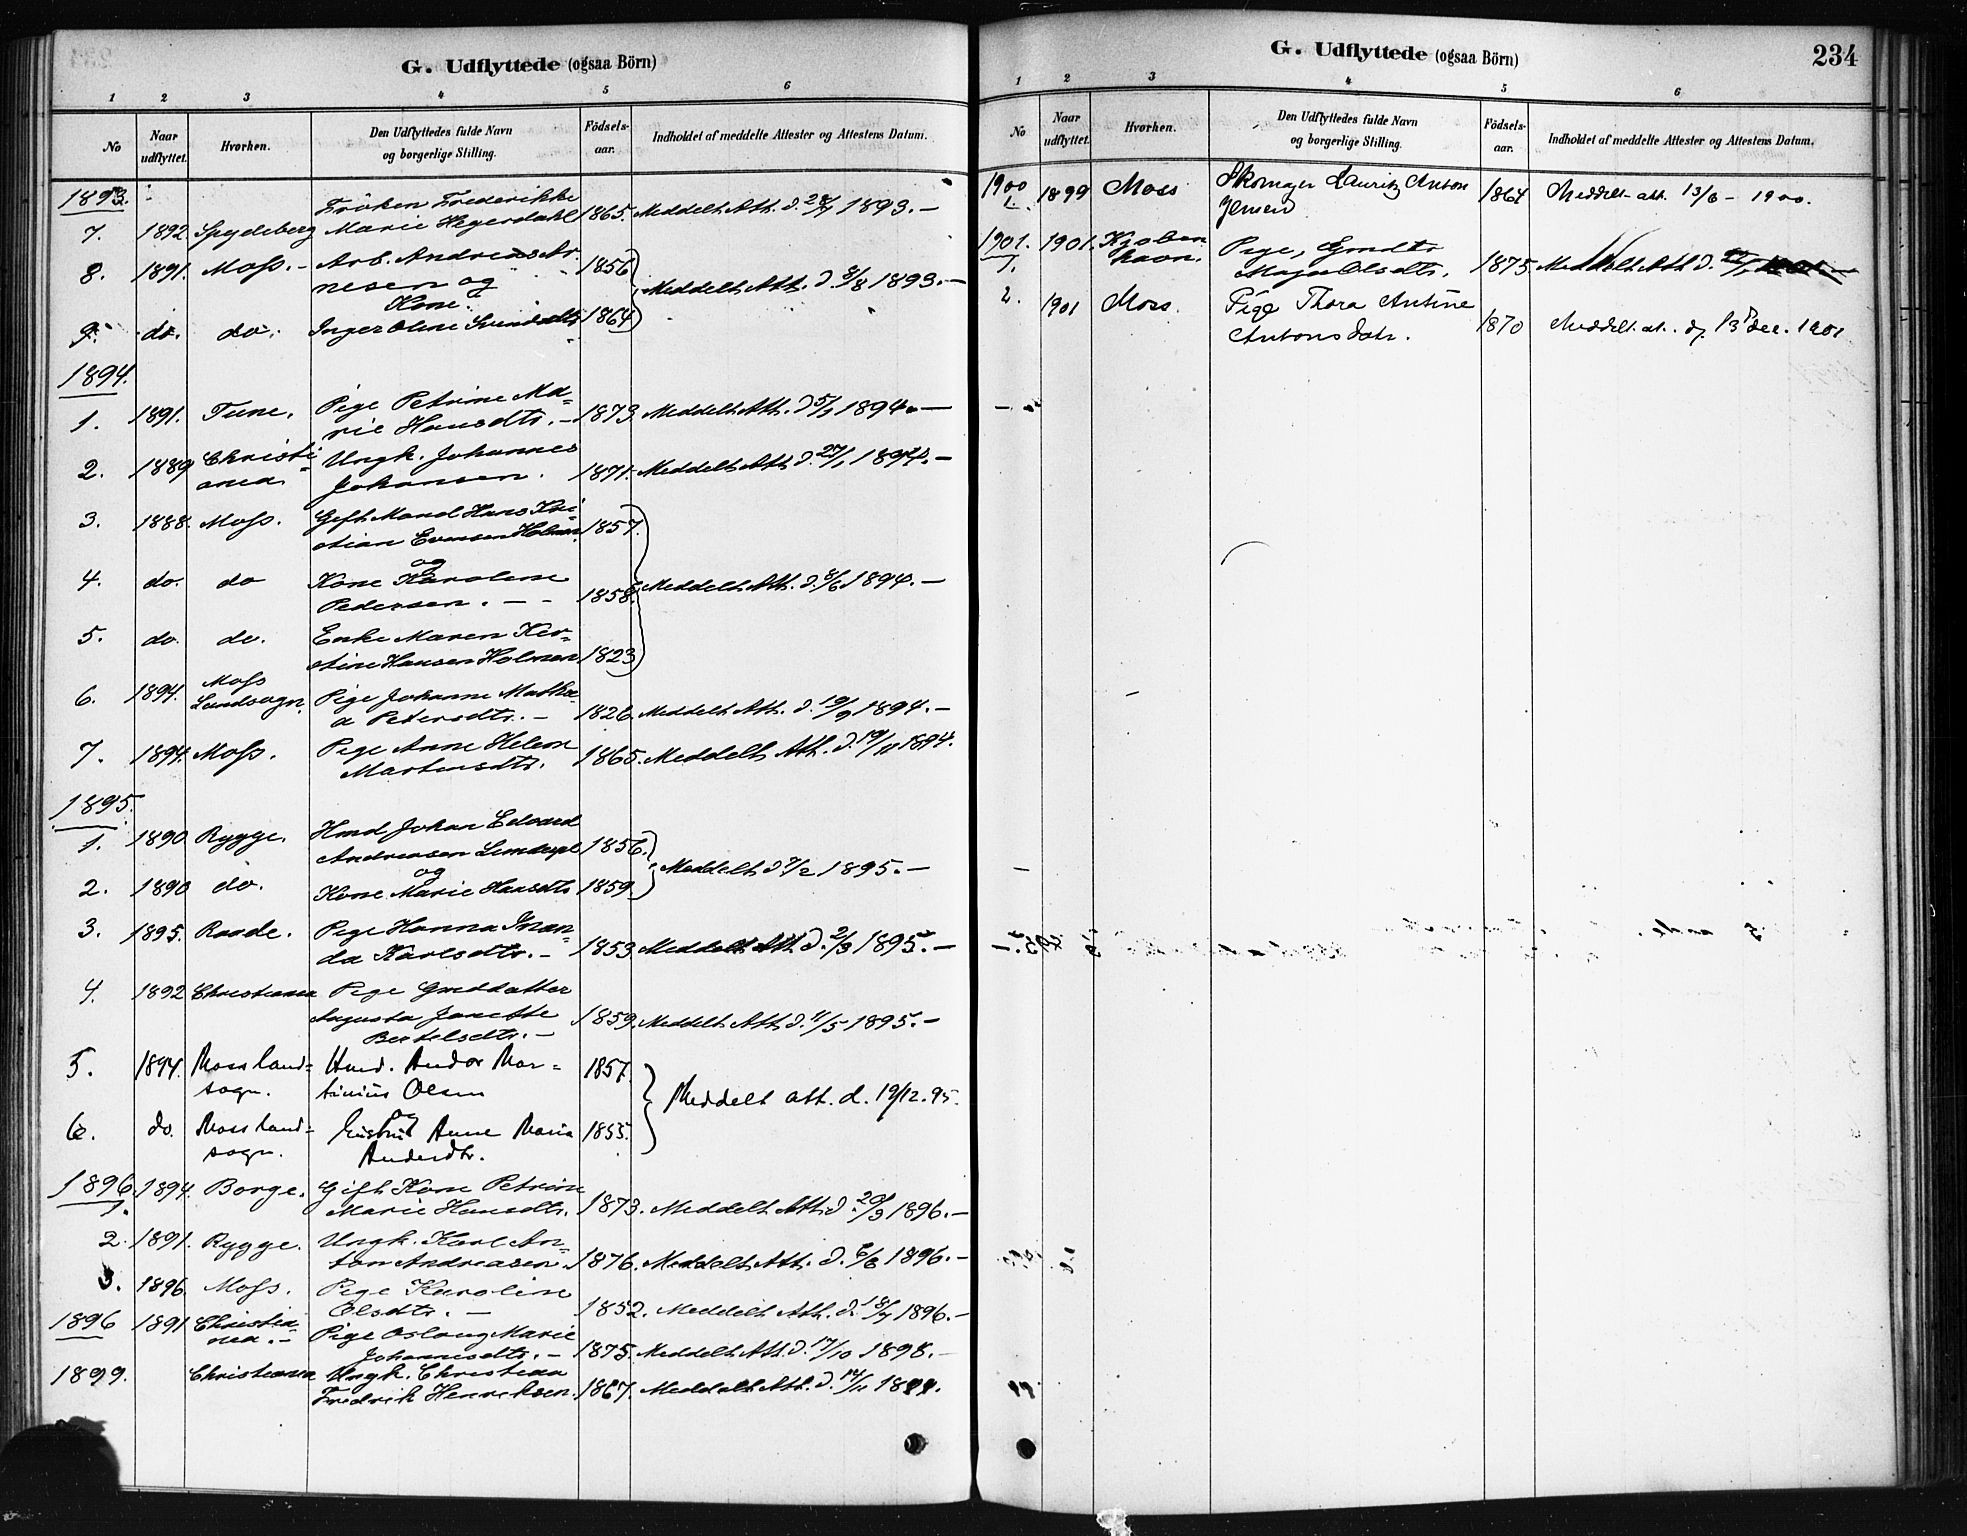 G. Udflyttede (ogsaa Börn)
1 2 3 4 5 6
No Naar udflyttet. Hvorhen. Den Udflyttedes fulde Navn og borgerlige Stilling. Födsels-aar. Indholdet af meddelte Attester og Attestens Datum.
1893.
Fröken Frederikke
7. 1892 Spydeberg Marie Hegerdahl 1865. Meddelt Att. d. 28/7 1893.-
8. 1891. Moss.- Arb. Andreas Ar-
nesen og 1856 Meddelt Att. d. 8/8 1893.-
Kone
9. do. do. Inger Oline Svendsdtr 1864
1894.
1. 1891. Tune. Pige Petrine Ma-
rie Hansdtr.- 1873 Meddelt Att. d 5/1 1894.-
2. 1889 Christi-
ania Ungk. Johannes
Johansen. 1871. Meddelt Att. d. 27/1 1894.-
3. 1888. Moss. Gift Mand Hans Kri-
stian Evensen Holmen 1857.
og
4. do. do Kone Karoline
Pedersen.-- 1858. Meddelt Att. d. 8/6 1894.-
5. do. do. Enke Maren Ker-
stine Hansen Holmen 1823
6. 1894. Moss
Landsogn. Pige Johanne Mathe-
a Pedersdtr.- 1826. Meddelt Att. d. 19/9 1894.-
7. 1894. Moss. Pige Anne Helene
Martinsdtr. 1865. Meddelt Att. d. 19/11 1894.
1895.
1. 1890 Rygge. Hmd Johan Edvard
Andreasen 1856.
og Meddelt d 7/2 1895.-
2. 1890 do. Kone Marie Hansdtr 1859.
3. 1895. Raade. Pige Hanna Inan-
da Karlsdtr.- 1853. Meddelt Att. d. 2/3 1895.-
4. 1892 Christiania Pige Gmddatter
Augusta Janette 1859. Meddelt Att. d. 11/5 1895.-
Bertelsdtr.-
5. 1894. Moss land-
sogn. Hmd. Andor Mar-
tinius Olsen 1857.
og Meddelt att. d. 19/12.95.
6. do. Moss land-
sogn. Hustru Anne Maria 1855.
Andersdtr.
1896.
1. 1894. Borge. Gift Kone Petrine
Marie Hansdtr. 1873. Meddelt Att. d. 20/3 1896.-
2. 1891. Rygge. Ungk. Karl An-
ton Andreasen. 1876. Meddelt Att. d. 6/6 1896.-
3. 1896. Moss. Pige Karoline
Olsdtr.- 1852. Meddelt Att. d. 18/7 1896.-
1896 1891 Christia-
nia.- Pige Oslaug Marie
Johannesdtr.- 1875. Meddelt Att. d. 17/10 1898.-
1899. Christiania Ungk. Christian
Fredrik Henriksen. 1867. Meddelt Att. d. 14/11 1899.
G. Udflyttede (ogsaa Börn) 234
1 2 3 4 5 6
No Naar udflyttet. Hvorhen. Den Udflyttedes fulde Navn og borgerlige Stilling. Födsels-aar. Indholdet af meddelte Attester og Attestens Datum.
1900
1. 1899 Moss Skomager Lauritz Anton
Jensen 1864 Meddelt att. 13/6 - 1900.
1901.
1. 1901. Kjøben
havn. Pige, Gmdtr
Olsdtr. 1875 Meddelt Att d.
2. 1901 Moss. Pige Thora Antine
Antonsdatr. 1870 Meddelt at. d. 13 dec. 1901